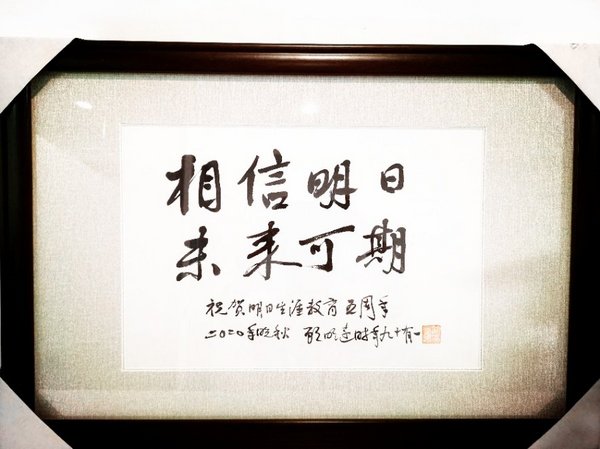 相信明日
未来可期
祝贺明日生涯教育五周年
二〇二〇年晚秋 顾明远时年九十有一